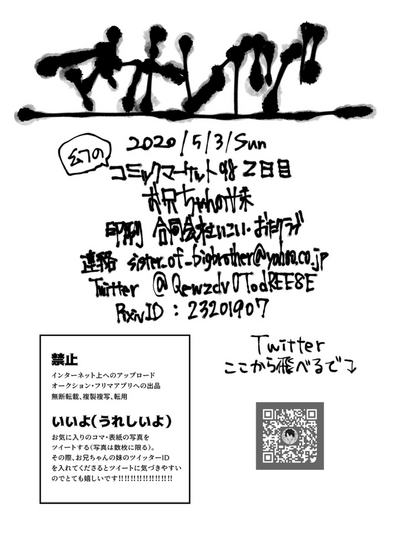 マオレンジ
2020/5/3/Sun
幻の
コミックマーケット98 2日目
お兄ちゃんの妹
印刷 合同会社いこい・おたクラブ
連絡 sister_of_bigbrother@yahoo.co.jp
Twitter @Qewzdv0TodREE8E
PixivID : 23201907
禁止
インターネット上へのアップロード
オークション・フリマアプリへの出品
無断転載、複製複写、転用
いいよ(うれしいよ)
お気に入りのコマ・表紙の写真を
ツイートする(写真は数枚に限る)。
その際、お兄ちゃんの妹のツイッターID
を入れてくださるとツイートに気づきやすい
のでとても嬉しいです!!!!!!!!!!!!!!!!!!
Twitter
ここから飛べるで↓